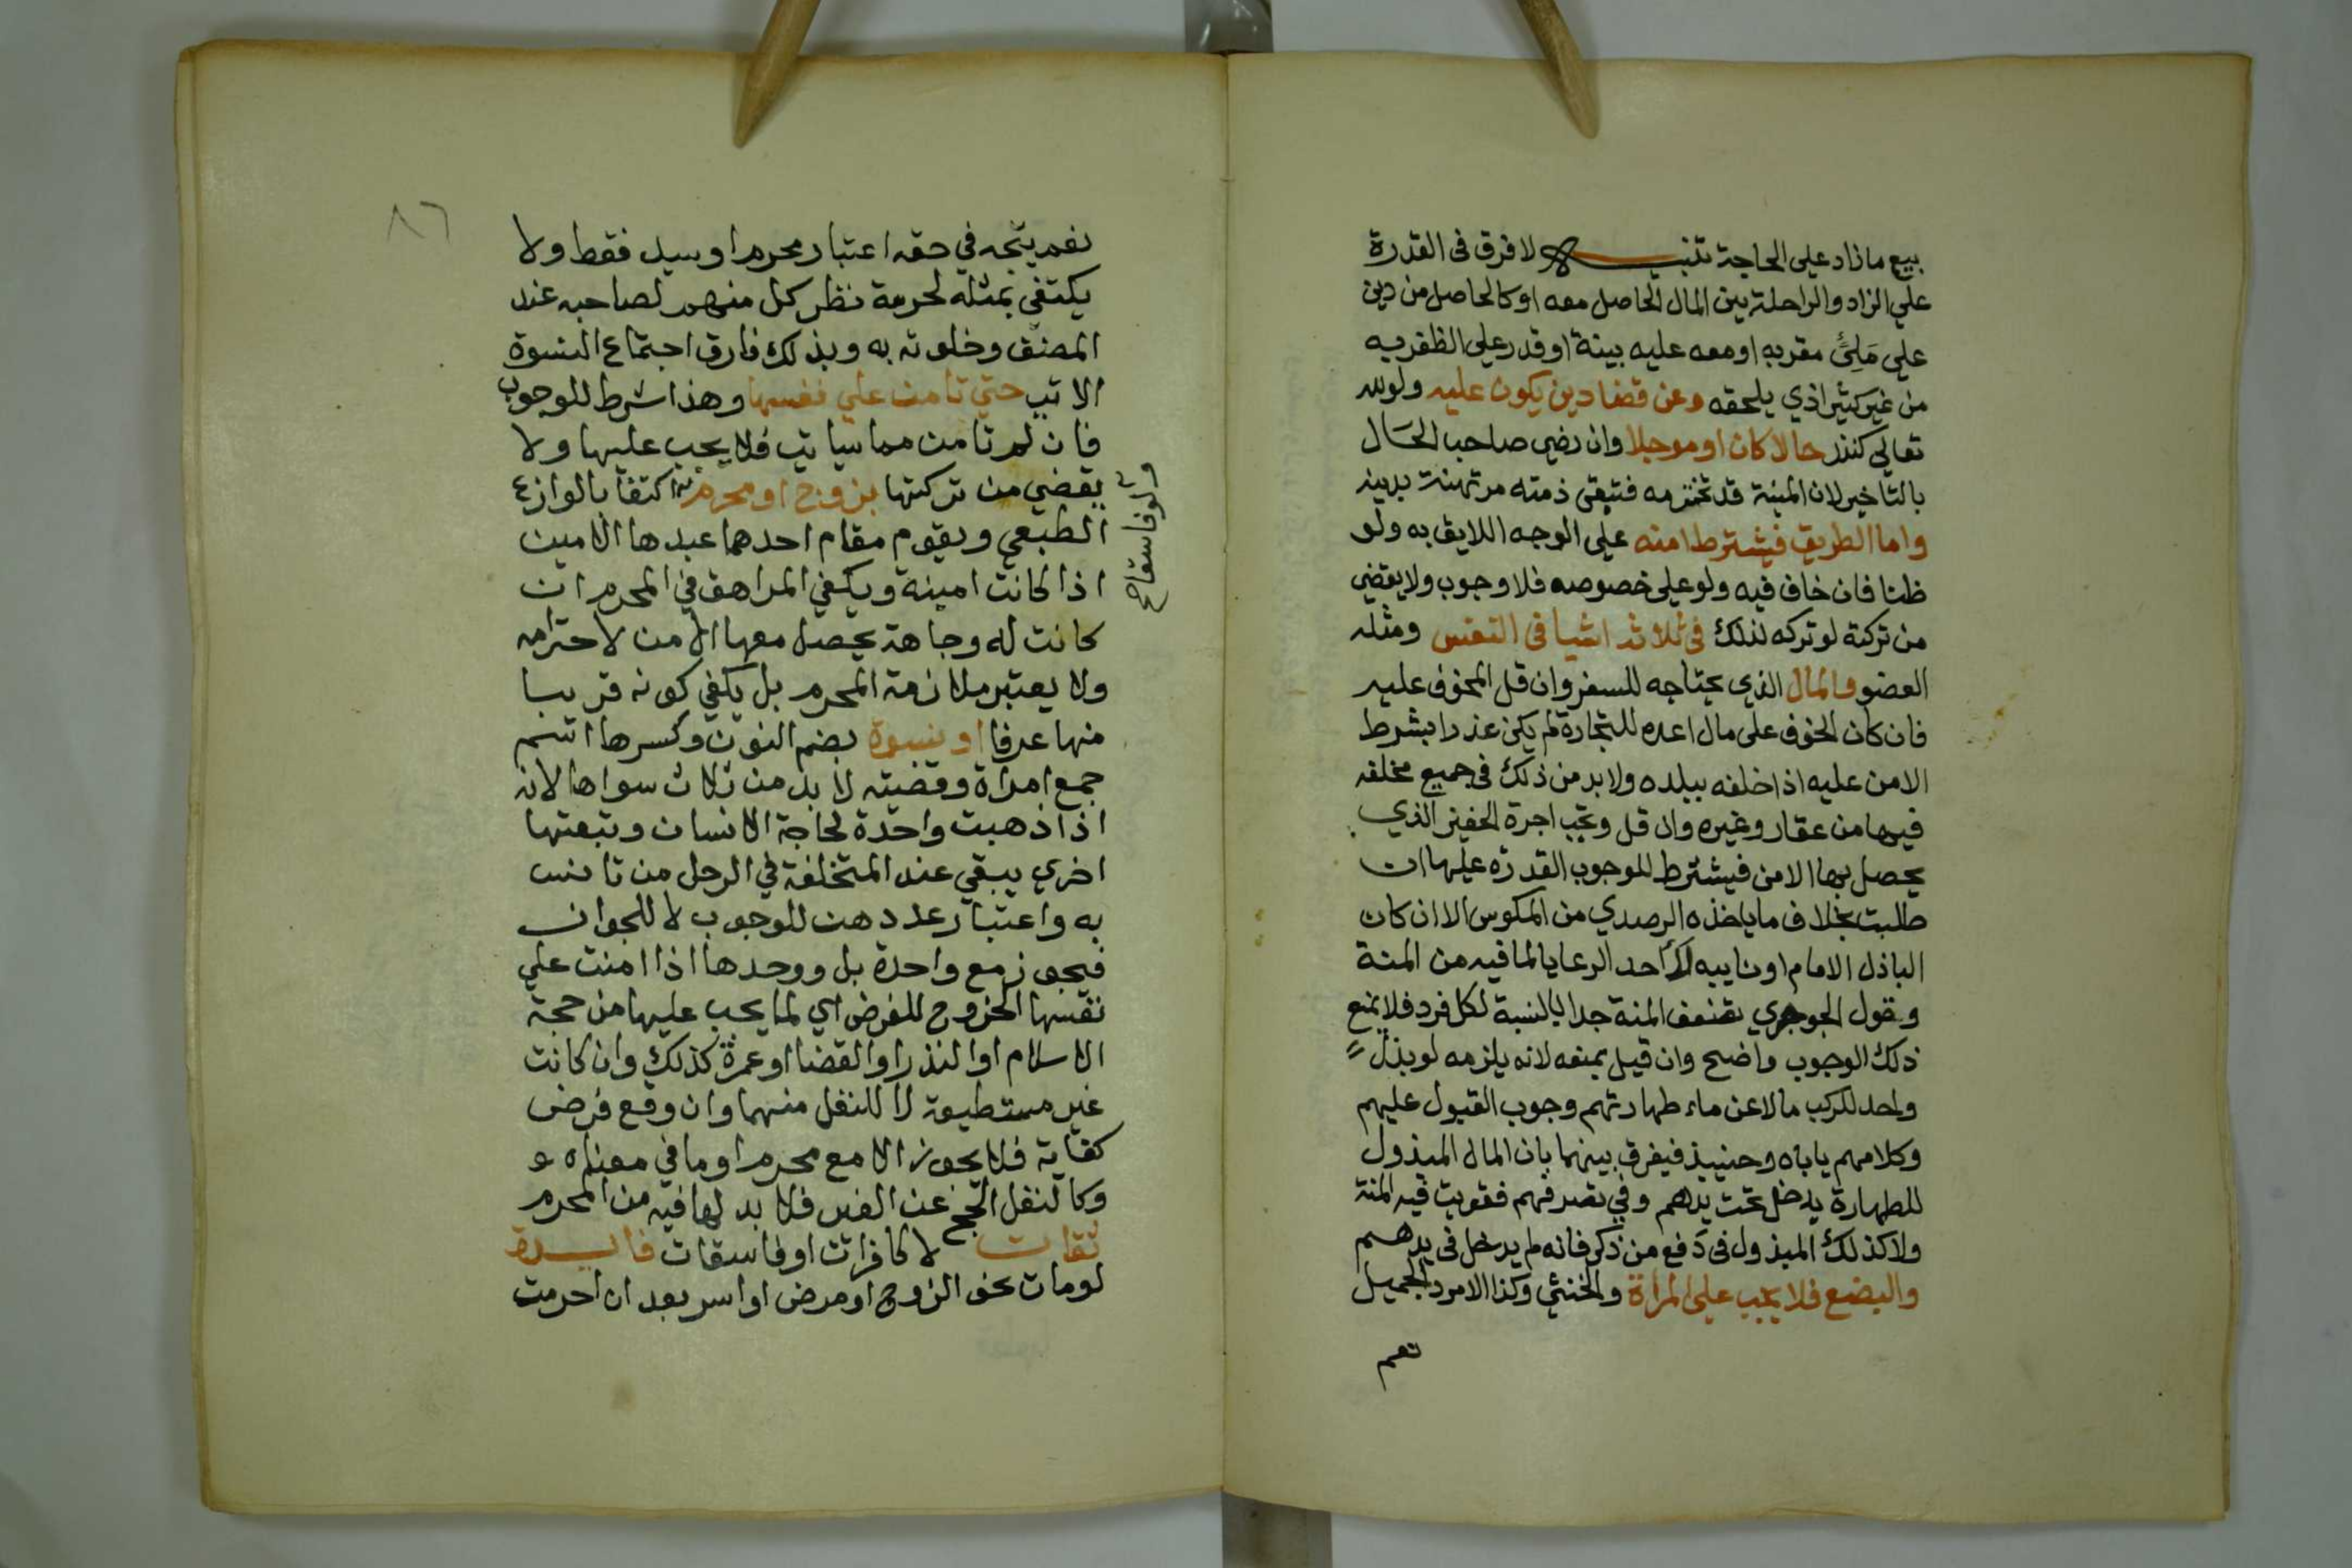 بيع ما زاد على الحاجة تنبيه لا فرق فى القدرة
على الزاد والراحلة بين المال الحاصل معه او كالحاصل من دين
على مَلِئٍ مقربه او معه عليه بينة او قدر على الظفر به
من غير كثير اذي يلحقه وعن قضا دين يكون عليه ولو لله
تعالى كنذر حالا كان او موجلا وان رضي صاحب الحال
بالتاخير لان المنية قد تخترمه فتبقى ذمته مرتهنة بدينه
واما الطريق فيشترط امنه على الوجه اللايق به ولو
ظنا فان خاف فيه ولو على خصوصه فلا وجوب ولا يقضي
من تركة لو تركه لذلك فى ثلاثه اشيا فى النفس ومثله
العضو والمال الذي يحتاجه للسفر وان قل المخوف عليه
فان كان الخوف على مال اعده للتجارة لم يكن عذرا بشرط
الامن عليه اذا خلفه ببلده ولا بد من ذلك فى جميع مخلفه
فيها من عقار وغيره وان قل وتجب اجرة الخفير الذي
يحصل بها الامن فيشترط للوجوب القدرة عليها ان
طلبت بخلاف ما ياخذه الرصدي من المكوس الا ان كان
الباذل الامام او نايبه لا احد الرعايا لما فيه من المنة
وقول الجوجري تضعف المنة جدا بالنسبة لكل فرد فلا يمنع
ذلك الوجوب واضح وان قيل بمنعه لانه يلزمه لو بذل
واحد للركب مالا عن ماء طهارتهم وجوب القبول عليهم
وكلامهم ياباه وحينيذ فيفرق بينهما بان المال المبذول
للطهارة يدخل تحت يدهم وفي تصرفهم فقويت فيه المنة
ولا كذلك المبذول فى دفع من ذكر فانه لم يدخل فى يدهم
والبضع فلا يجب على المراة والخنثي وكذا الامرد الجميل
نعم
٨٦
نعم يتجه في حقه اعتبار محرم او سيد فقط ولا
يكتفي بمثله لحرمة نظر كل منهم لصاحبه عند
المصنف وخلوته به وبذلك فارق اجتماع النسوة
الاتي حتي تامن علي نفسها وهذا شرط للوجوب
فان لم تامن مما سياتي فلا يجب عليها ولا
يقضي من تركتها بزوج او محرم اكتفا بالوازع
ولو فاسقا صح
الطبعي ويقوم مقام احدهما عبدها الامين
اذا كانت امينة ويكفي المراهق في المحرم ان
كانت له وجاهة يحصل معها الامن لاحترامه
ولا يعتبر ملازمة المحرم بل يكفي كونه قريبا
منها عرفا او نسوة بضم النون وكسرها اسم
جمع امراة وقضيته لا بد من ثلاث سواها لانه
اذا ذهبت واحدة لحاجة الانسان وتبعتها
اخري يبقي عند المتخلفة في الرحل من تانس
به واعتبار عددهن للوجوب لا للجواز
فيجوز مع واحدة بل ووحدها اذا امنت علي
نفسها الخروج للفرض اي لما يجب عليها من حجة
الاسلام او النذر او القضا او عمرة كذلك وان كانت
غير مستطيعة لا للنفل منهما وان وقع فرض
كفاية فلا يجوز الا مع محرم او ما في معناه و
وكالنفل الحج عن الغير فلا بد لها فيه من المحرم
ثقات لا كافرات او فاسقات فايدة
لو مات نحو الزوج او مرض او اسر بعد ان احرمت